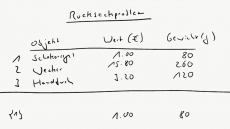 Rucksackproblem
Objekt Wert (€) Gewicht (g)
1 Schokoriegel 1.00 80
2 Wecker 15.80 260
3 Handtuch 3.20 120
{1} 1.00 80